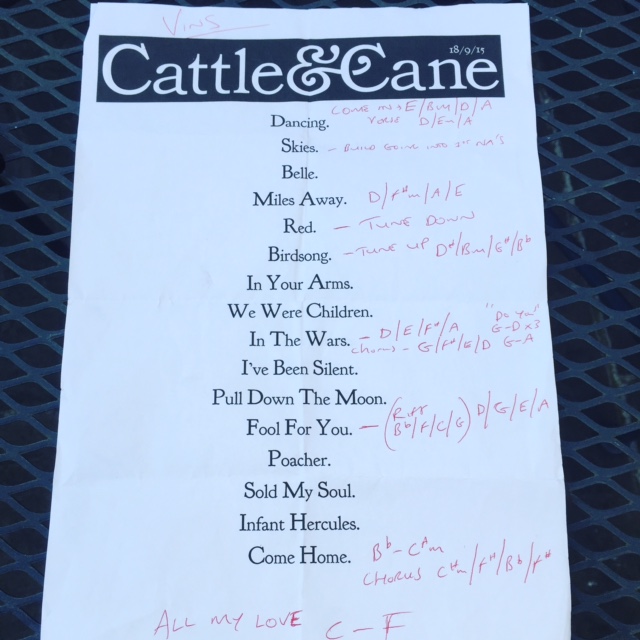 VINS
Cattle&Cane 18/9/15
COME IN E/Bm/D/A
Dancing. VERSE D/Em/A
Skies. - BUILD GOING INTO 1ST NA'S
Belle.
Miles Away. D/F#m/A/E
Red. - TUNE DOWN
Birdsong. - TUNE UP D#/Bm/G#/Bb
In Your Arms.
We Were Children.
"DO YOU"
In The Wars. - D/E/F#/A G-D x3
CHORUS - G/F#/E/D G-A
I've Been Silent.
Pull Down The Moon.
Fool For You. - (RIFF Bb/F/C/G) D/G/E/A
Poacher.
Sold My Soul.
Infant Hercules.
Come Home. Bb-C#m
CHORUS C#m/F#/Bb/F#
ALL MY LOVE C-F